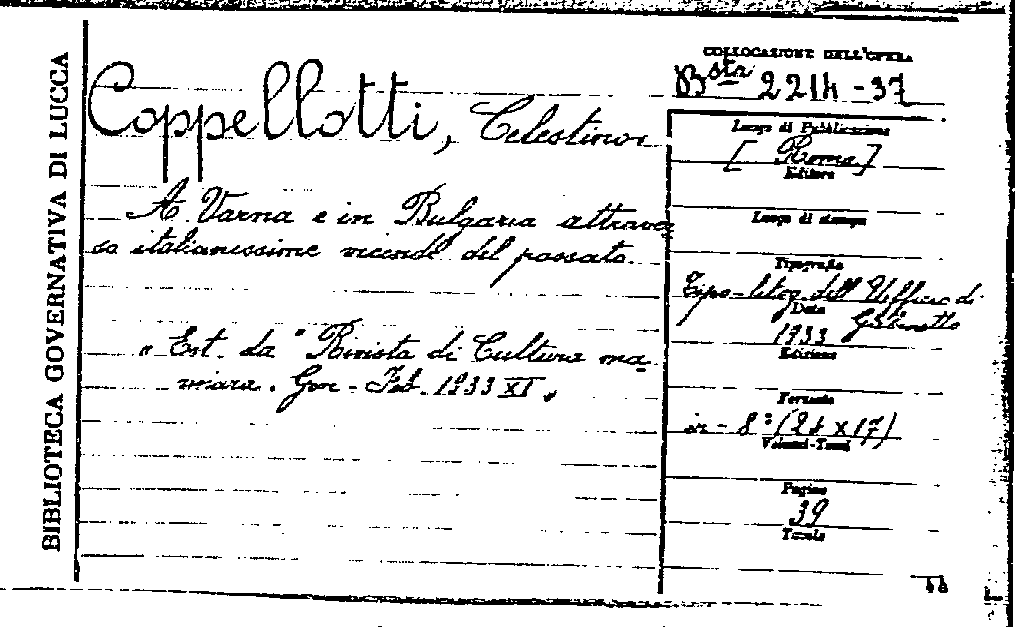 BIBLIOTECA GOVERNATIVA DI LUCCA
COLLOCAZIONE DELL'OPERA
Bsta 2214-37
Coppellotti, Celestino
A Varna e in Bulgaria attraver
so italianissime vicende del passato.
"Est. da "Rivista di Cultura ma
rinara. Gen - Feb. 1933 XI"
Luogo di Pubblicazione
[Roma]
Editore
Luogo di stampa
Tipografia
Tipo-litog. dell'Ufficio di
Gabinetto
Data
1933
Edizione
Formato
in - 8° (24 x 17)
Volumi-Tomi
Pagine
39
Tavole